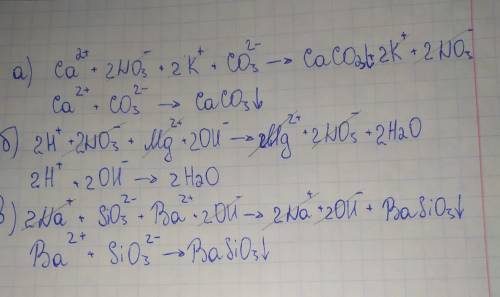 а) Ca²⁺ + 2NO₃⁻ + 2K⁺ + CO₃²⁻ → CaCO₃↓ + 2K⁺ + 2NO₃⁻
Ca²⁺ + CO₃²⁻ → CaCO₃↓
б) 2H⁺ + 2NO₃⁻ + Mg²⁺ + 2OH⁻ → Mg²⁺ + 2NO₃⁻ + 2H₂O
2H⁺ + 2OH⁻ → 2H₂O
в) 2Na⁺ + SiO₃²⁻ + Ba²⁺ + 2OH⁻ → 2Na⁺ + 2OH⁻ + BaSiO₃↓
Ba²⁺ + SiO₃²⁻ → BaSiO₃↓